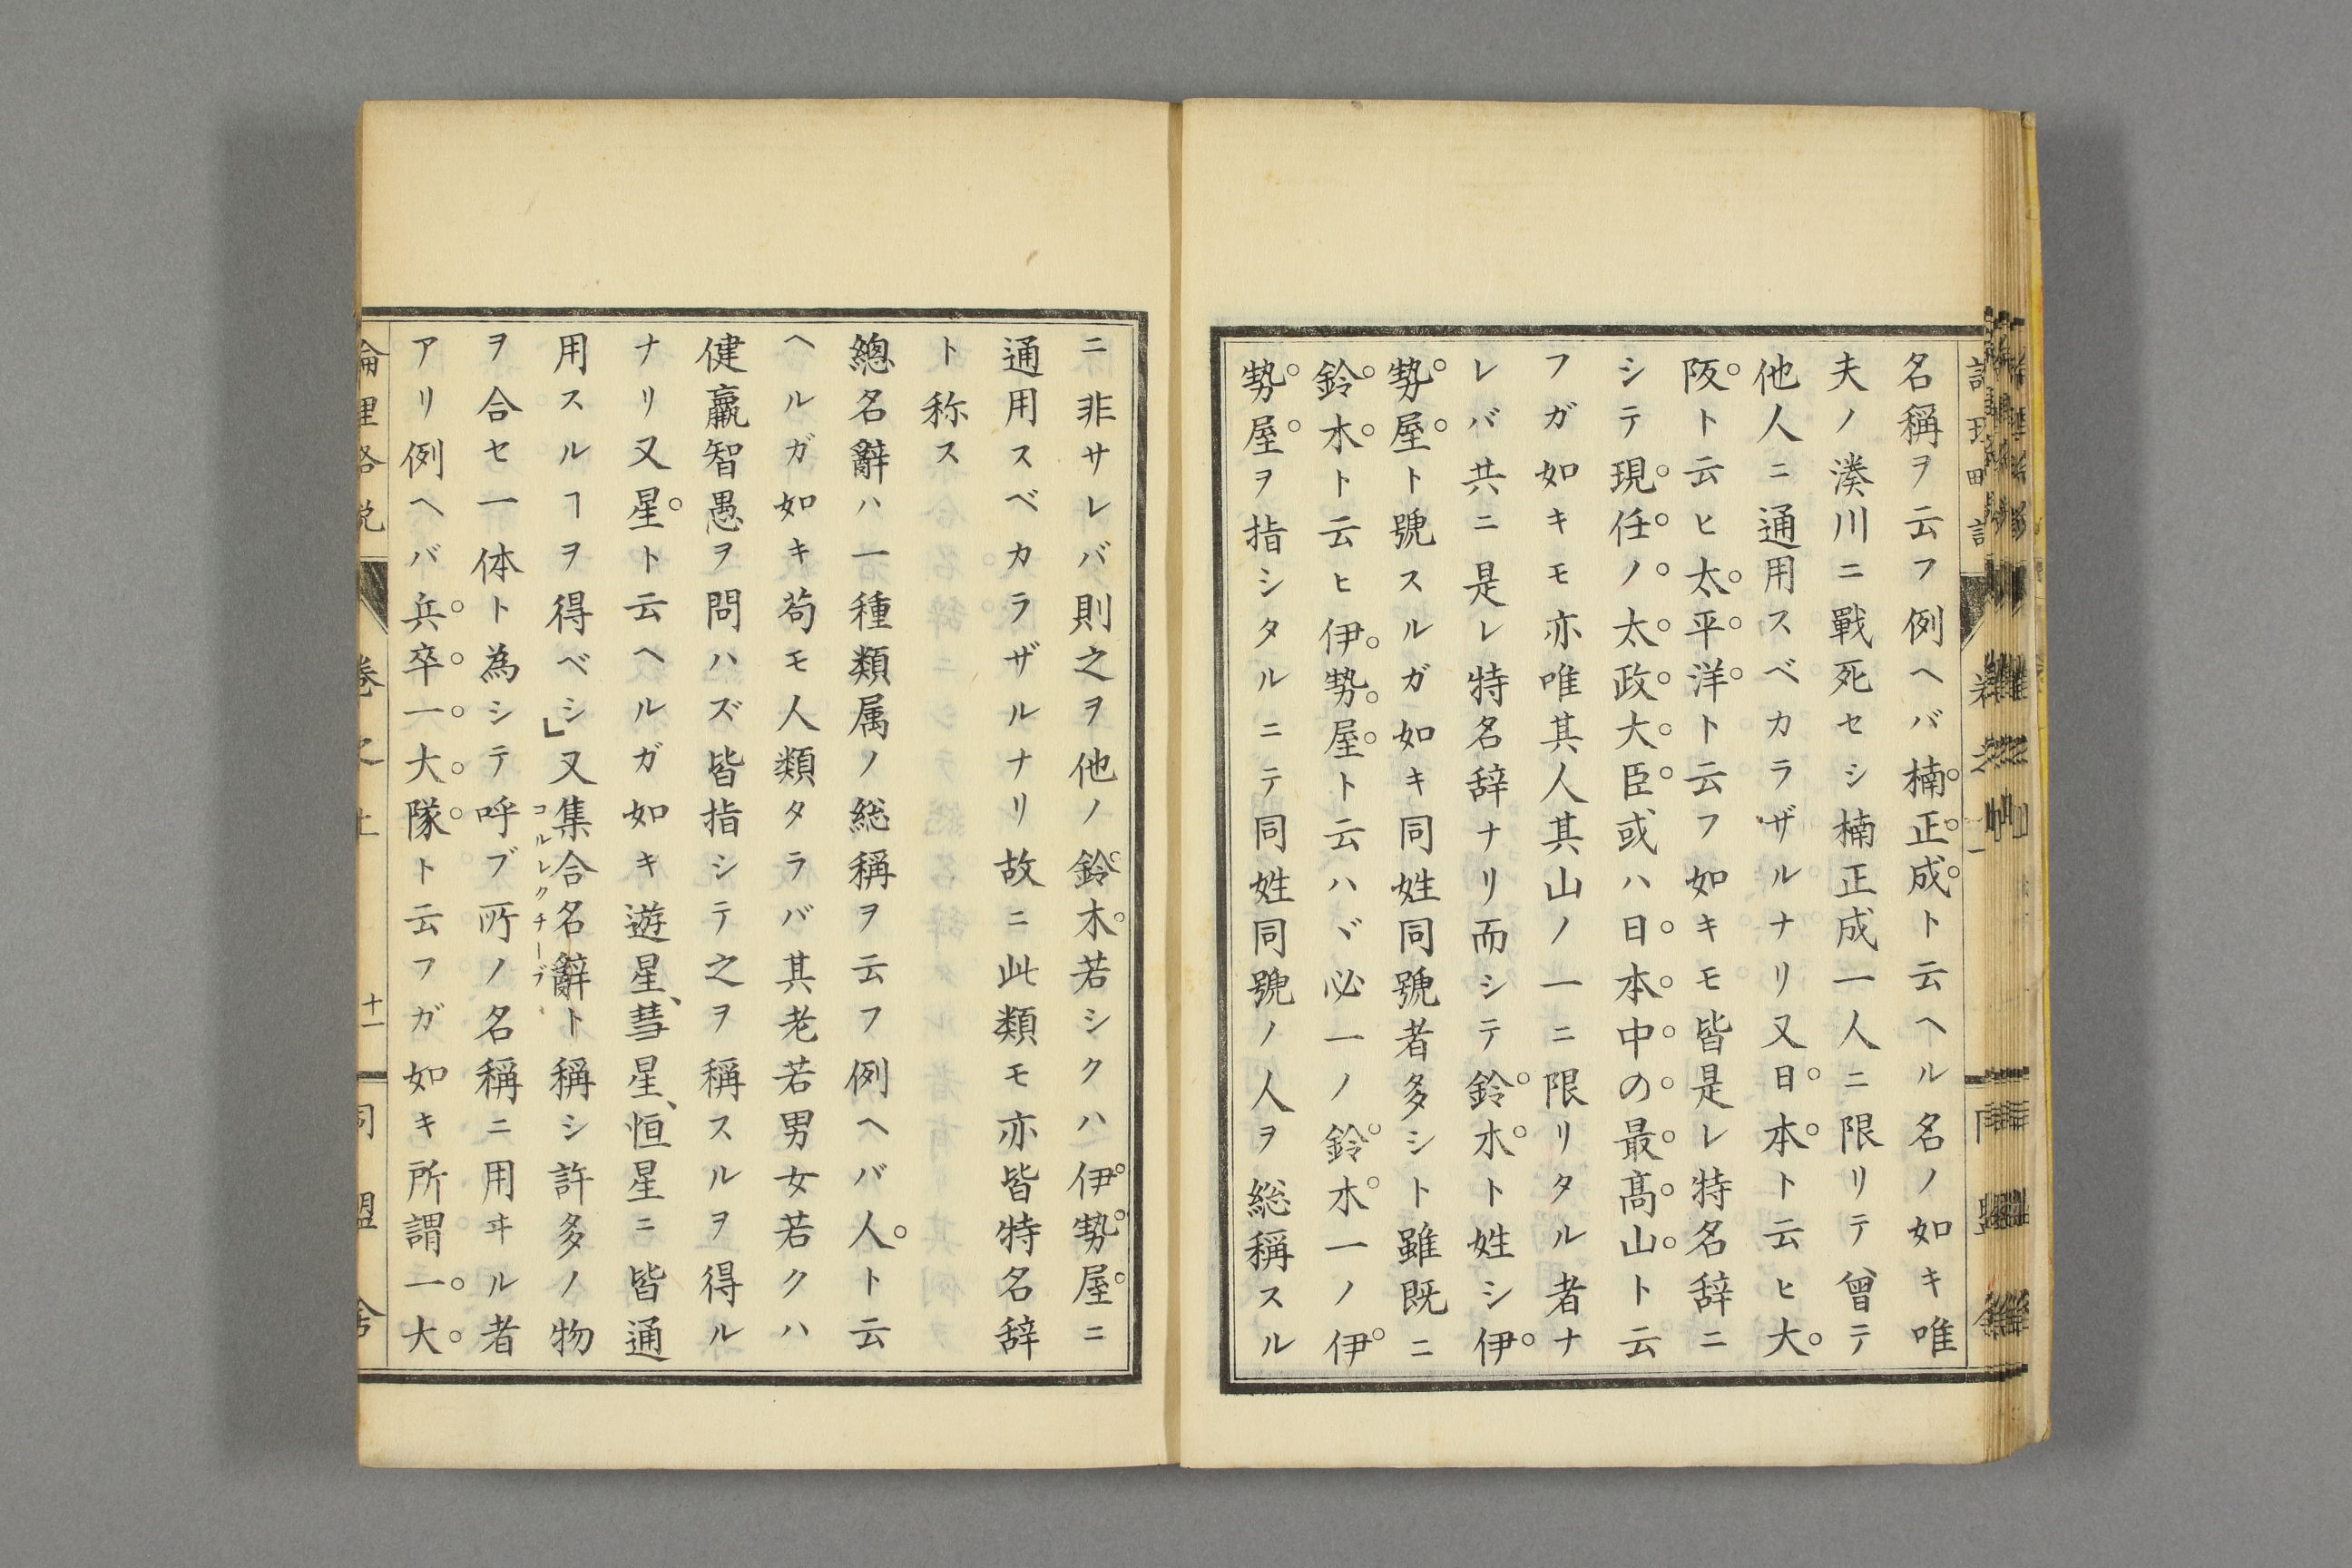 名稱ヲ云フ例ヘバ楠正成ト云ヘル名ノ如キ唯
夫ノ湊川ニ戰死セシ楠正成一人ニ限リテ曾テ
他人ニ通用スベカラザルナリ又日本ト云ヒ大
阪ト云ヒ太平洋ト云フ如キモ皆是レ特名辞ニ
シテ現任ノ太政大臣或ハ日本中の最髙山ト云
フガ如キモ亦唯其人其山ノ一ニ限リタル者ナ
レバ共ニ是レ特名辞ナリ而シテ鈴木ト姓シ伊
勢屋ト號スルガ如キ同姓同號者多シト雖既ニ
鈴木ト云ヒ伊勢屋ト云ハヾ必一ノ鈴木一ノ伊
勢屋ヲ指シタルニテ同姓同號ノ人ヲ総稱スル
ニ非サレバ則之ヲ他ノ鈴木若シクハ伊勢屋ニ
通用スベカラザルナリ故ニ此類モ亦皆特名辞
ト称ス
總名辭ハ一種類属ノ総稱ヲ云フ例ヘバ人ト云
ヘルガ如キ苟モ人類タラバ其老若男女若クハ
健羸智愚ヲ問ハズ皆指シテ之ヲ稱スルヲ得ル
ナリ又星ト云ヘルガ如キ遊星、彗星、恒星ニ皆通
用スルヿヲ得ベシ」又集合名辭ト稱シ許多ノ物
コルレクチーブ
ヲ合セ一体ト為シテ呼ブ所ノ名稱ニ用ヰル者
アリ例ヘバ兵卒一大隊ト云フガ如キ所謂一大
論理略説 卷之上 十一 同盟舎